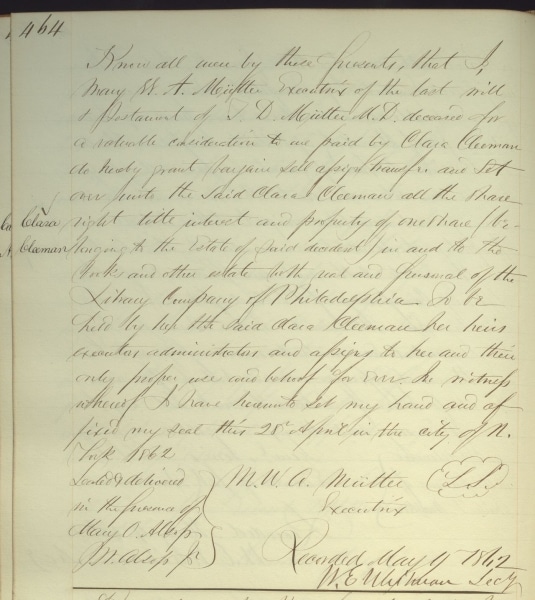 464
Know all men by these presents, that I,
Mary W. A. Mütter Executrix of the last will
& testament of T. D. Mütter M.D. deceased for
a valuable consideration to me paid by Clara Cleeman
do hereby grant bargain sell assign transfer and set
over unto the said Clara Cleeman all the share
right title interest and property of one share (be-
longing to the Estate of said decedent) in and to the
Books and other estate both real and personal of the
Library Company of Philadelphia. To be
held by her the said Clara Cleeman her heirs
executors administrators and assigns to her and their
only proper use and behoof for ever. In witness
whereof I have hereunto set my hand and af
fixed my seal this 28' April in the city of N.
York 1862
Clara
Cleeman
Sealed & delivered
in the presence of
Mary O. Alsop
J. W. Alsop Jr
M. W. A. Mütter
Executrix
Recorded May 9 1862
Secy